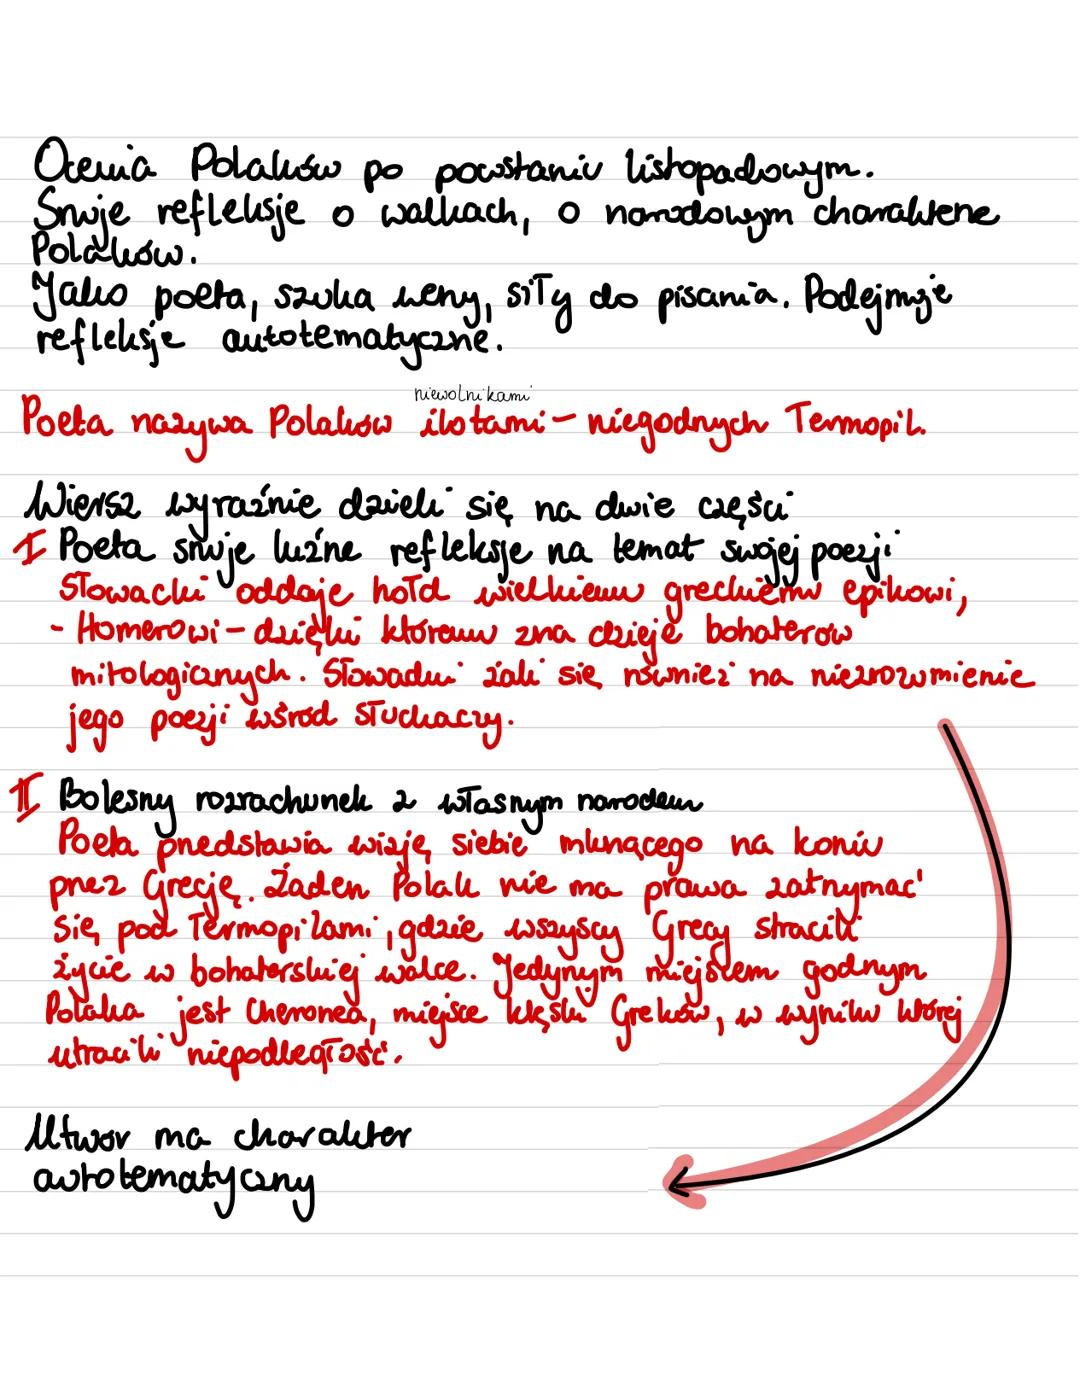 Ocenia Polaków po powstaniu listopadowym.
Snuje refleksje o walkach, o narodowym charakterze
Polaków.
Jako poeta, szuka weny, siły do pisania. Podejmuje
refleksje autotematyczne.
niewolnikami
Poeta nazywa Polaków ilotami - niegodnych Termopil.
Wiersz wyraźnie dzieli się na dwie części
I Poeta snuje luźne refleksje na temat swojej poezji
Słowacki oddaje hołd wielkiemu greckiemu epikowi,
- Homerowi - dzięki któremu zna dzieje bohaterów
mitologicznych. Słowacki żali się również na niezrozumienie
jego poezji wśród słuchaczy.
II Bolesny rozrachunek z własnym narodem
Poeta przedstawia wizję siebie mknącego na koniu
przez Grecję. Żaden Polak nie ma prawa zatrzymać
się pod Termopilami, gdzie wszyscy Grecy stracili
życie w bohaterskiej walce. Jedynym miejscem godnym
Polaka jest Cheronea, miejsce klęski Greków, w wyniku której
utracili niepodległość.
Utwór ma charakter
autotematyczny